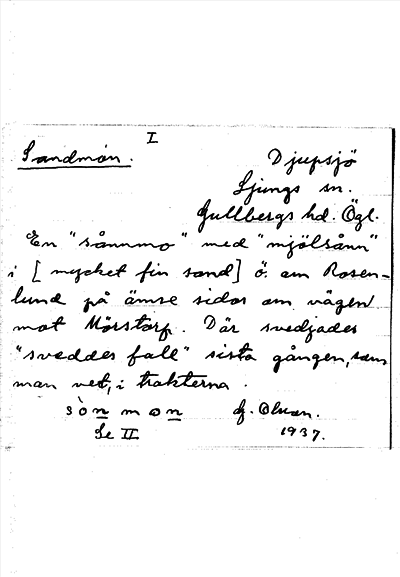 I
Sandmon.
Djupsjö
Ljungs sn.
Gullbergs hd. Ögl.
En "sånnmo" med "mjölsånn"
i [mycket fin sand] ö. om Rosen-
lund på ömse sidor om vägen
mot Mörstorp. Där svedjades
"sveddes fall" sista gången, som
man vet, i trakterna.
sònmon
G. Olson.
Se II
1937.